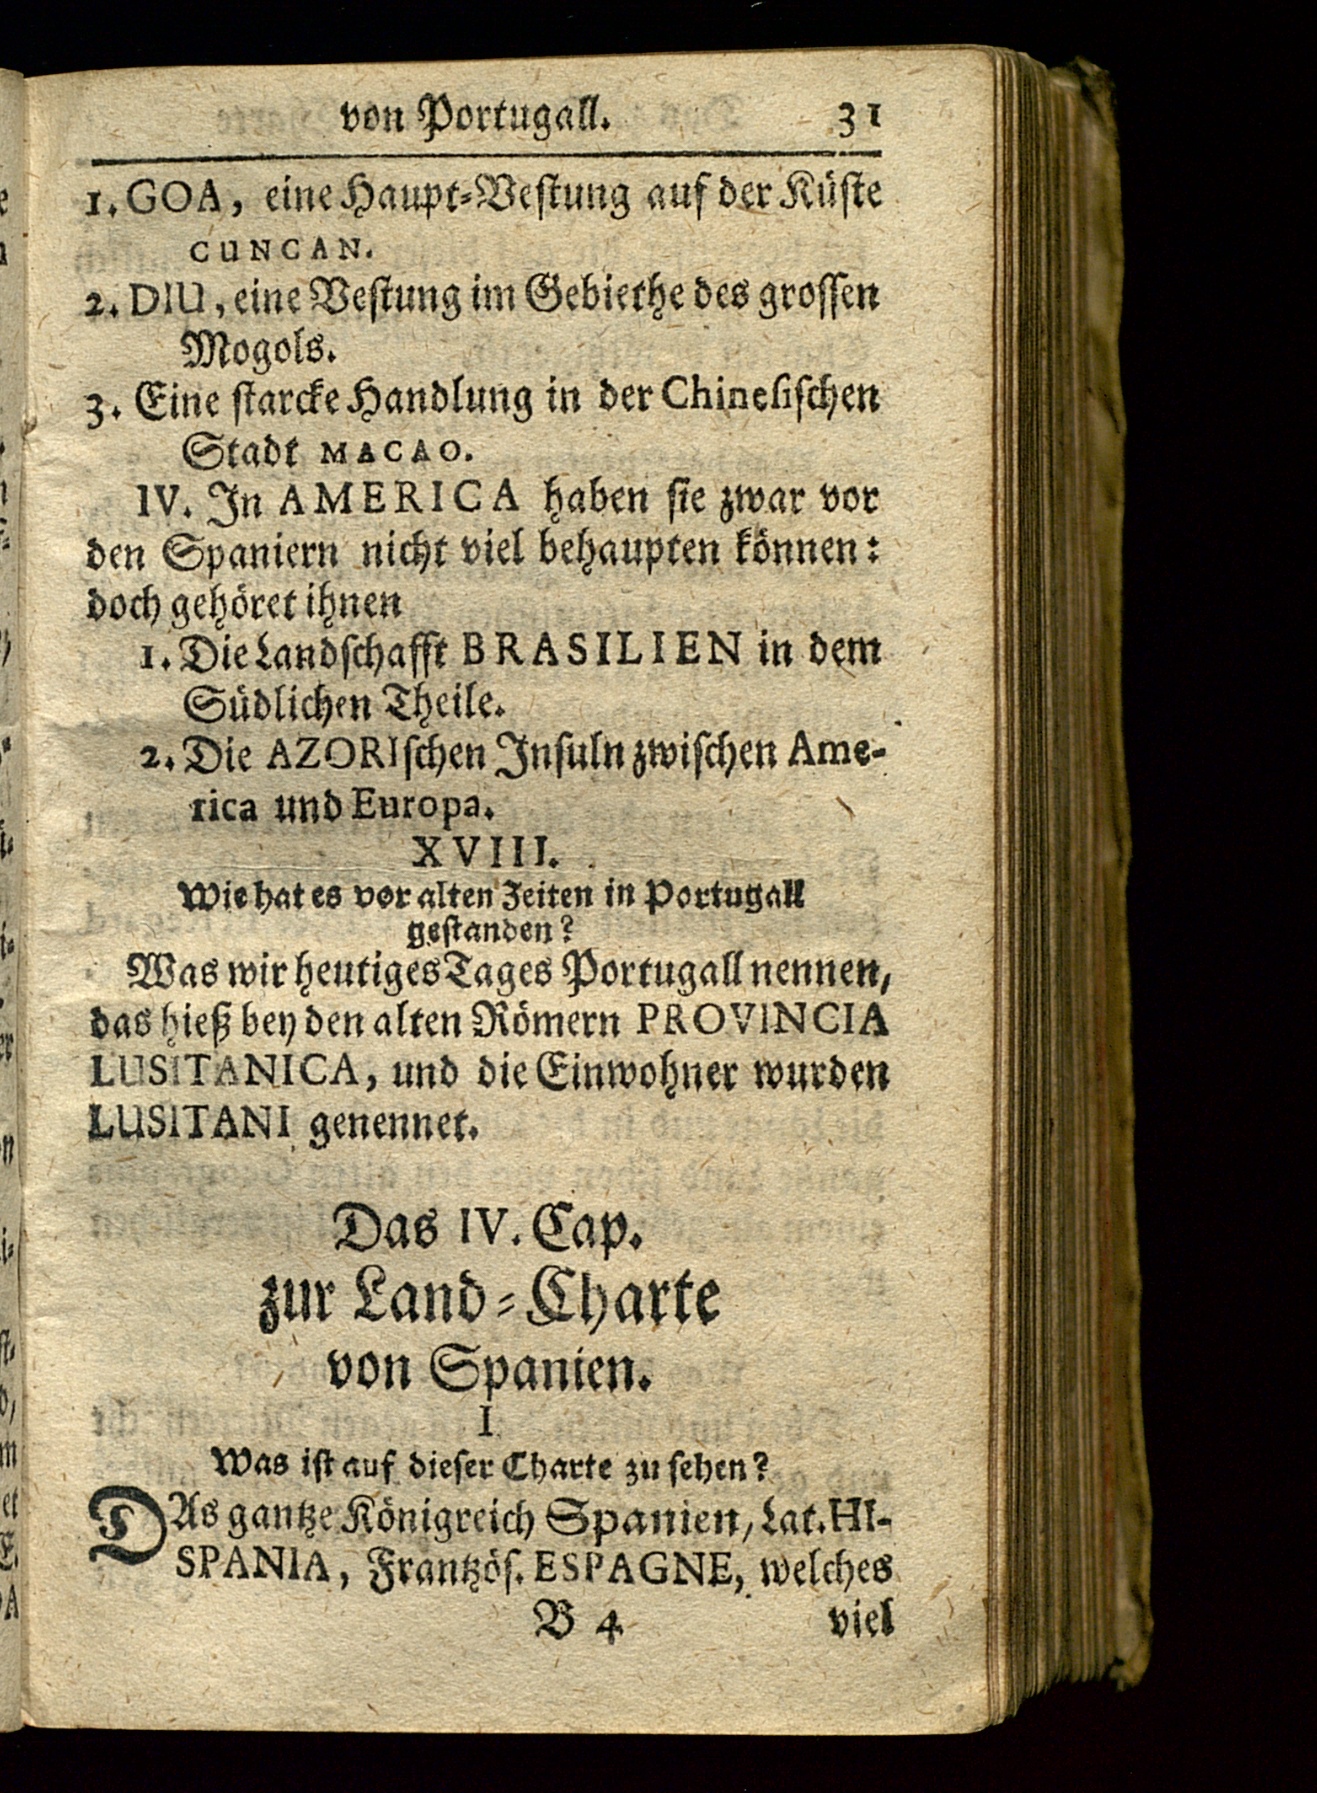 von Portugall. 31
1. GOA, eine Haupt-Vestung auf der Küste
CUNCAN.
2. DIU, eine Vestung im Gebiethe des grossen
Mogols.
3. Eine starcke Handlung in der Chinesischen
Stadt MACAO.
IV. In AMERICA haben sie zwar vor
den Spaniern nicht viel behaupten können:
doch gehöret ihnen
1. Die Landschafft BRASILIEN in dem
Südlichen Theile.
2. Die AZORIschen Insuln zwischen Ame-
rica und Europa.
XVIII.
Wie hat es vor alten Zeiten in Portugall
gestanden?
Was wir heutiges Tages Portugall nennen,
das hieß bey den alten Römern PROVINCIA
LUSITANICA, und die Einwohner wurden
LUSITANI genennet.
Das IV. Cap.
zur Land-Charte
von Spanien.
I
Was ist auf dieser Charte zu sehen?
DAs gantze Königreich Spanien, Lat. HI-
SPANIA, Frantzös. ESPAGNE, welches
B 4 viel